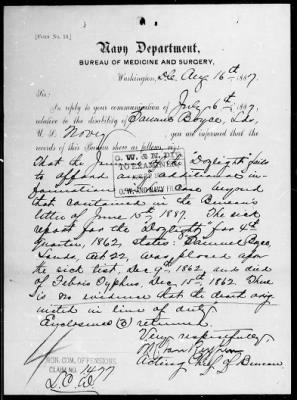 [Form No. 13.]
Navy Department,
BUREAU OF MEDICINE AND SURGERY,
Washington, Aug 16th 1887.
Sir:
In reply to your communication of July 6th, 1887,
relative to the disability of Samuel Boyce, Lds,
U. S. Navy, you are informed that the
records of this Bureau show as follows, viz:
That the fails
to afford any additional in-
formation case beyond
that contained in the Bureau's
letter of June 15th 1887. The sick
report for the for 4th
quarter, 1862, states: Samuel
Lands, Aet 22, was placed upon
the sick list, Dec 9th 1862, and died
of Febris Typhus, Dec 15th, 1862. There
is no evidence that the death orig-
inated in line of duty.
Enclosures returned.
Very respectfully
Acting Chief of Bureau
O. W. & NAVY
NON. COM. OFFENSIONS
CLAIM NO. 1477